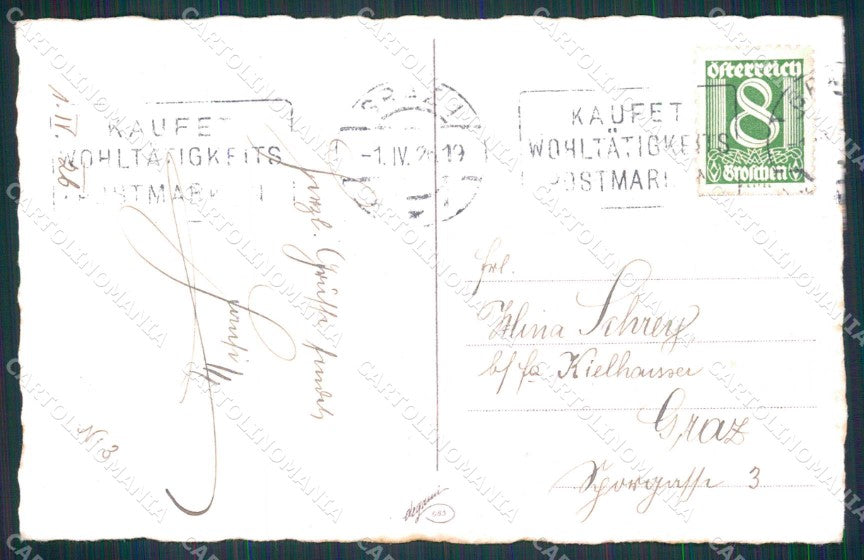 1. IV 26
KAUFET
WOHLTÄTIGKEITS
POSTMARKEN
GRAZ
-1.IV.26 19
KAUFET
WOHLTÄTIGKEITS
POSTMARKEN
Österreich
8
Groschen
Herzl. Grüsse sendet
Frl.
Mina Schrey
b/ Fa Kielhauser
Graz
Sporgasse 3
No 3
degami
683
CARTOLINOMANIA